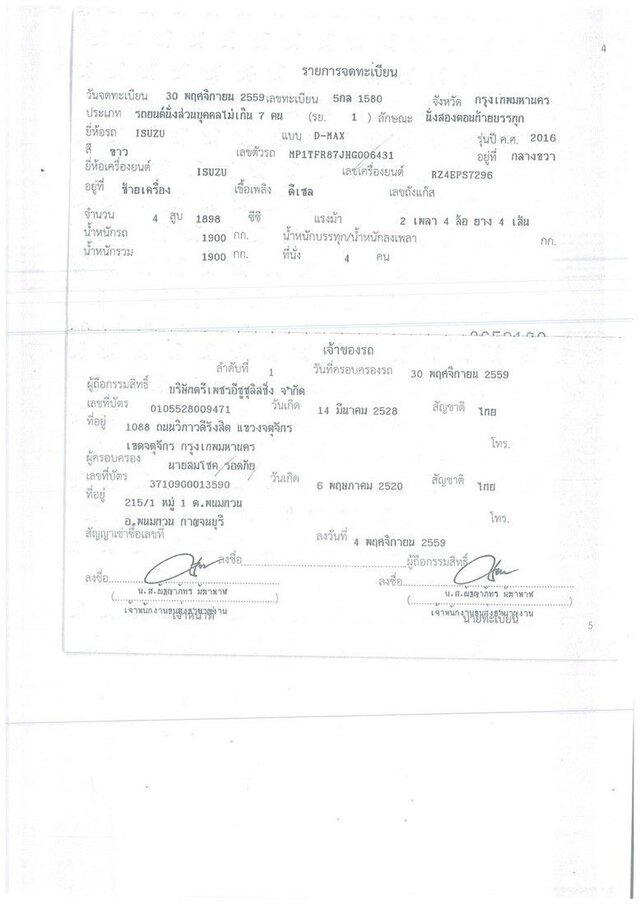 4
รายการจดทะเบียน
วันจดทะเบียน 30 พฤศจิกายน 2559 เลขทะเบียน 5กล 1580 จังหวัด กรุงเทพมหานคร
ประเภท รถยนต์นั่งส่วนบุคคลไม่เกิน 7 คน (รย. 1 ) ลักษณะ นั่งสองตอนท้ายบรรทุก
ยี่ห้อรถ ISUZU แบบ D-MAX รุ่นปี ค.ศ. 2016
สี ขาว เลขตัวรถ MP1TFR87JHG006431 อยู่ที่ กลางขวา
ยี่ห้อเครื่องยนต์ ISUZU เลขเครื่องยนต์ RZ4EPS7296
อยู่ที่ ซ้ายเครื่อง เชื้อเพลิง ดีเซล เลขถังแก๊ส
จำนวน 4 สูบ 1898 ซีซี แรงม้า 2 เพลา 4 ล้อ ยาง 4 เส้น
น้ำหนักรถ 1900 กก. น้ำหนักบรรทุก/น้ำหนักลงเพลา กก.
น้ำหนักรวม 1900 กก. ที่นั่ง 4 คน
เจ้าของรถ
ลำดับที่ 1 วันที่ครอบครองรถ 30 พฤศจิกายน 2559
ผู้ถือกรรมสิทธิ์ บริษัทตรีเพชรอีซูซุลิสซิ่ง จำกัด
เลขที่บัตร 0105528009471 วันเกิด 14 มีนาคม 2528 สัญชาติ ไทย
ที่อยู่ 1088 ถนนวิภาวดีรังสิต แขวงจตุจักร
เขตจตุจักร กรุงเทพมหานคร โทร.
ผู้ครอบครอง นายสมโชค รอดภัย
เลขที่บัตร 3710900013590 วันเกิด 6 พฤษภาคม 2520 สัญชาติ ไทย
ที่อยู่ 215/1 หมู่ 1 ต.พนมทวน
อ.พนมทวน กาญจนบุรี โทร.
สัญญาเช่าซื้อเลขที่ ลงวันที่ 4 พฤศจิกายน 2559
ลงชื่อ ผู้ถือกรรมสิทธิ์
ลงชื่อ ลงชื่อ
เจ้าพนักงานขนส่งชำนาญงาน เจ้าพนักงานขนส่งชำนาญงาน
เจ้าหน้าที่ นายทะเบียน
5